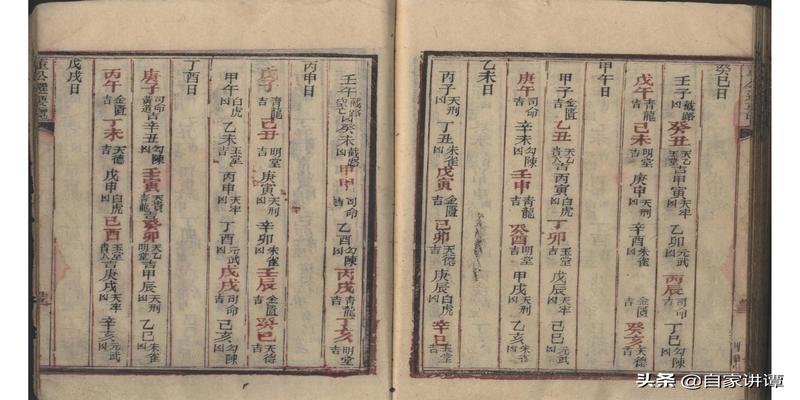 癸巳日
壬子截路凶癸丑天乙吉甲寅天牢凶乙卯元武凶丙辰司命吉丁巳勾陳凶
戊午青龍吉己未明堂吉庚申天刑凶辛酉朱雀凶金匱吉癸亥天德吉
甲午日
甲子金匱吉乙丑天乙貴人吉丙寅白虎凶丁卯玉堂吉戊辰天牢凶己巳元武凶
庚午司命吉辛未勾陳凶壬申青龍吉癸酉明堂吉甲戌天刑凶乙亥朱雀凶
乙未日
丙子天刑凶丁丑朱雀凶戊寅金匱吉己卯天德吉庚辰白虎凶辛巳玉堂吉
壬午截路空亡凶癸未截路凶甲申司命吉乙酉勾陳凶丙戌青龍吉丁亥明堂吉
丙申日
戊子青龍吉己丑明堂吉庚寅天刑凶辛卯朱雀凶壬辰金匱吉癸巳天德吉
甲午白虎凶乙未玉堂吉丙申天牢凶丁酉元武凶戊戌司命吉己亥勾陳凶
丁酉日
庚子司命黃道吉辛丑勾陳凶壬寅青龍吉癸卯天乙明堂吉甲辰天刑凶乙巳朱雀凶
丙午金匱吉丁未天德吉戊申白虎凶己酉玉堂貴人吉庚戌天牢凶辛亥元武凶
戊戌日
头条 @自家讲谭